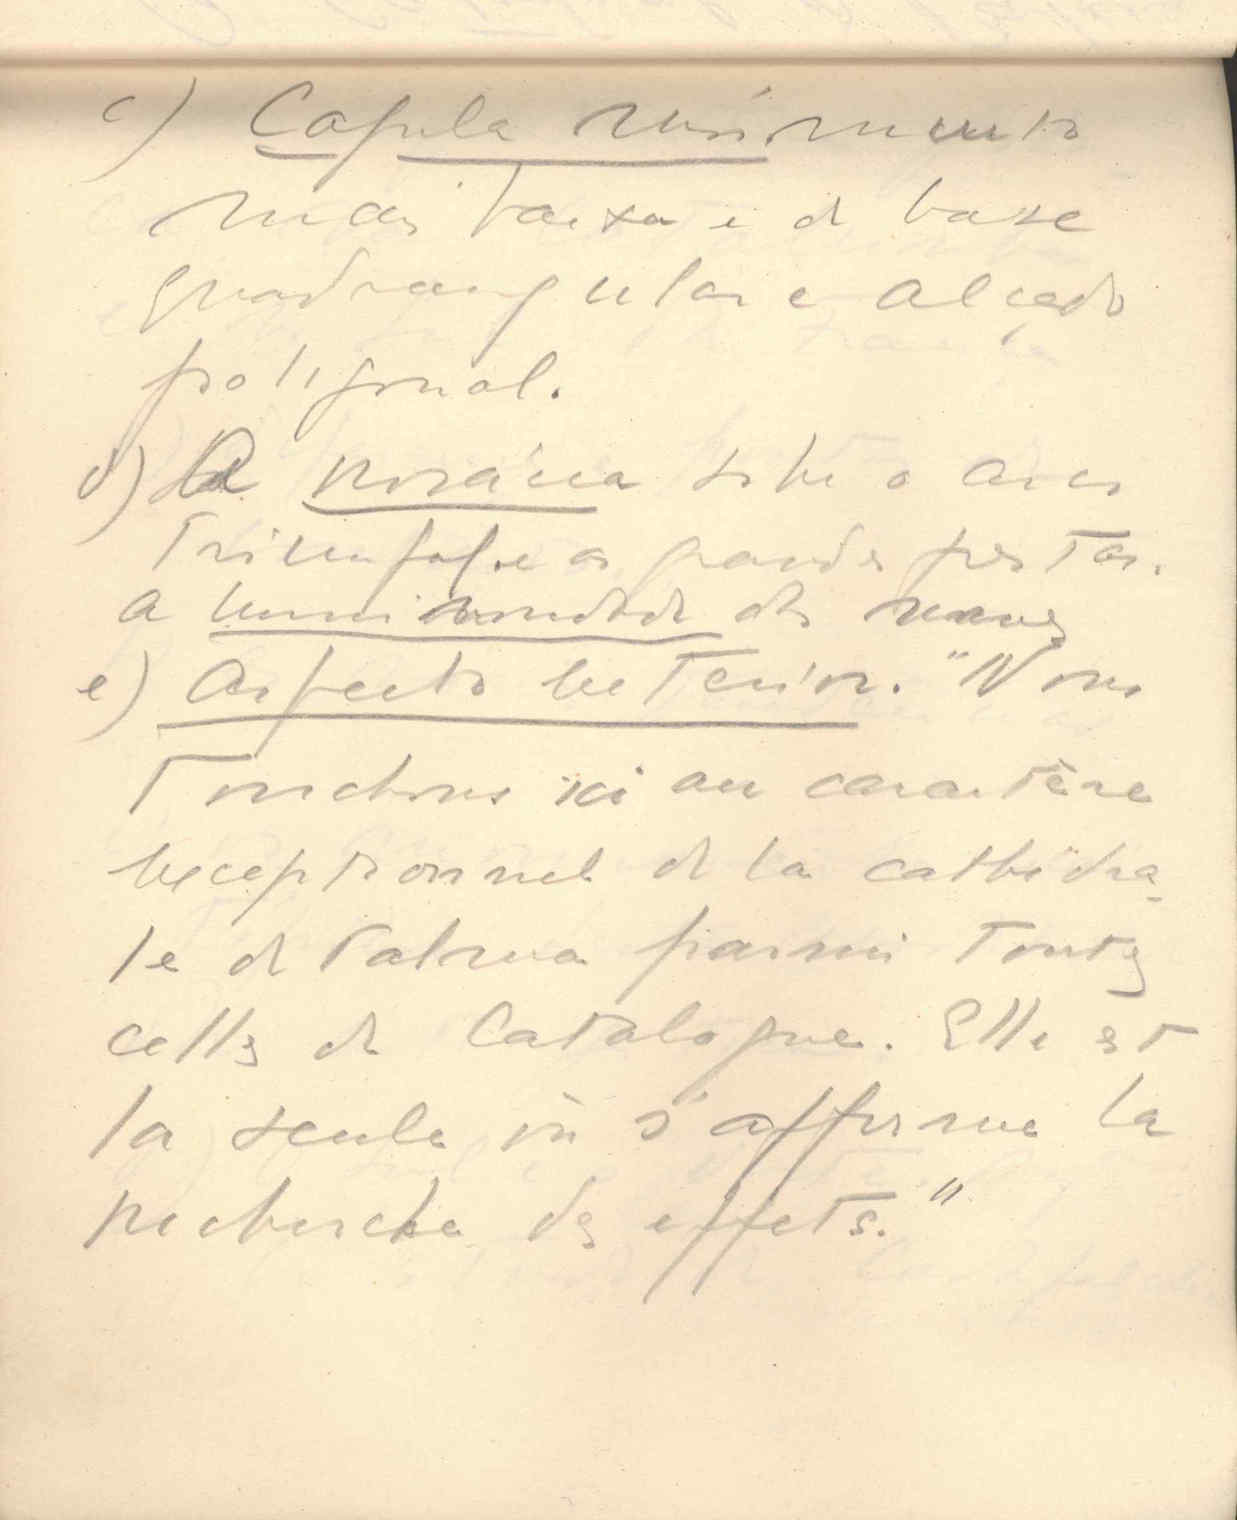 c) Capela mór. muito
mais baixa e de base
quadrangular e alçado
poligonal.
d) A rosácea sobre o arco
triumfal. e as grandes frestas.
a luminosidade das naves
e) Aspecto exterior. "Nous
touchons ici au caractère
exceptionnel de la cathédra-
le de Palma parmi toutes
celles de Catalogne. Elle est
la seule où s'affirme la
recherche des effets."